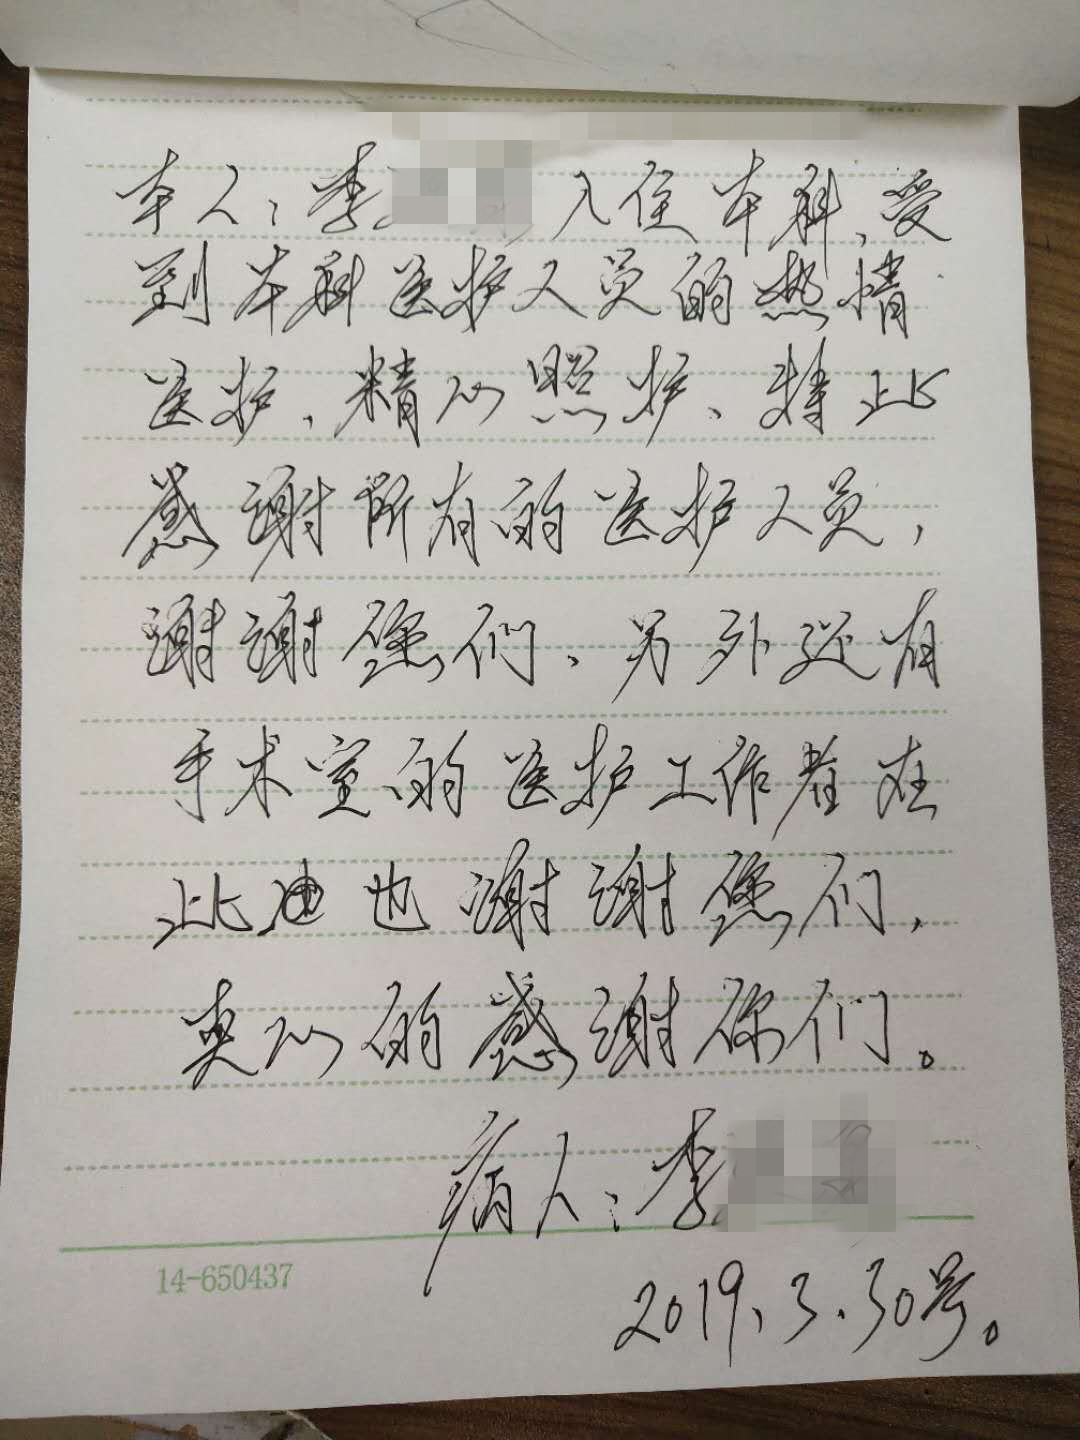 本人:李 入住本科,受
到本科医护人员的热情
医护、精心照护、特此
感谢所有的医护人员,
谢谢您们、另外还有
手术室的医护工作者在
此也谢谢您们,
衷心的感谢你们。
病人:李
2019.3.30号。
14-650437